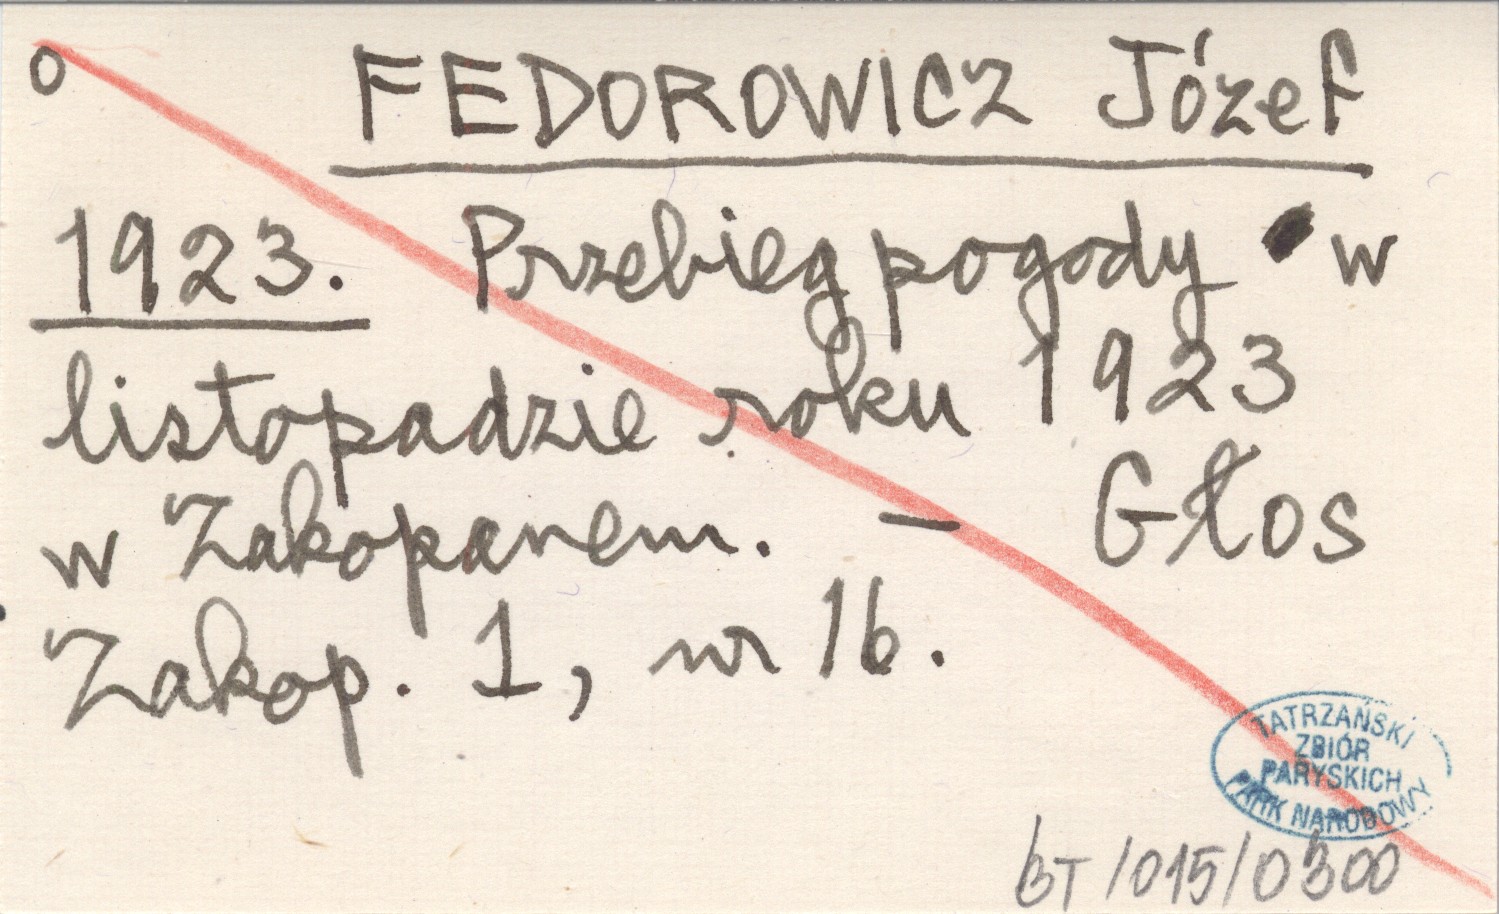 o FEDOROWICZ Józef
1923. Przebieg pogody w
listopadzie roku 1923
w Zakopanem. — Głos
Zakop. 1, nr 16.
TATRZAŃSKI
ZBIÓR
PARYSKICH
PARK NARODOWY
BT/015/0300